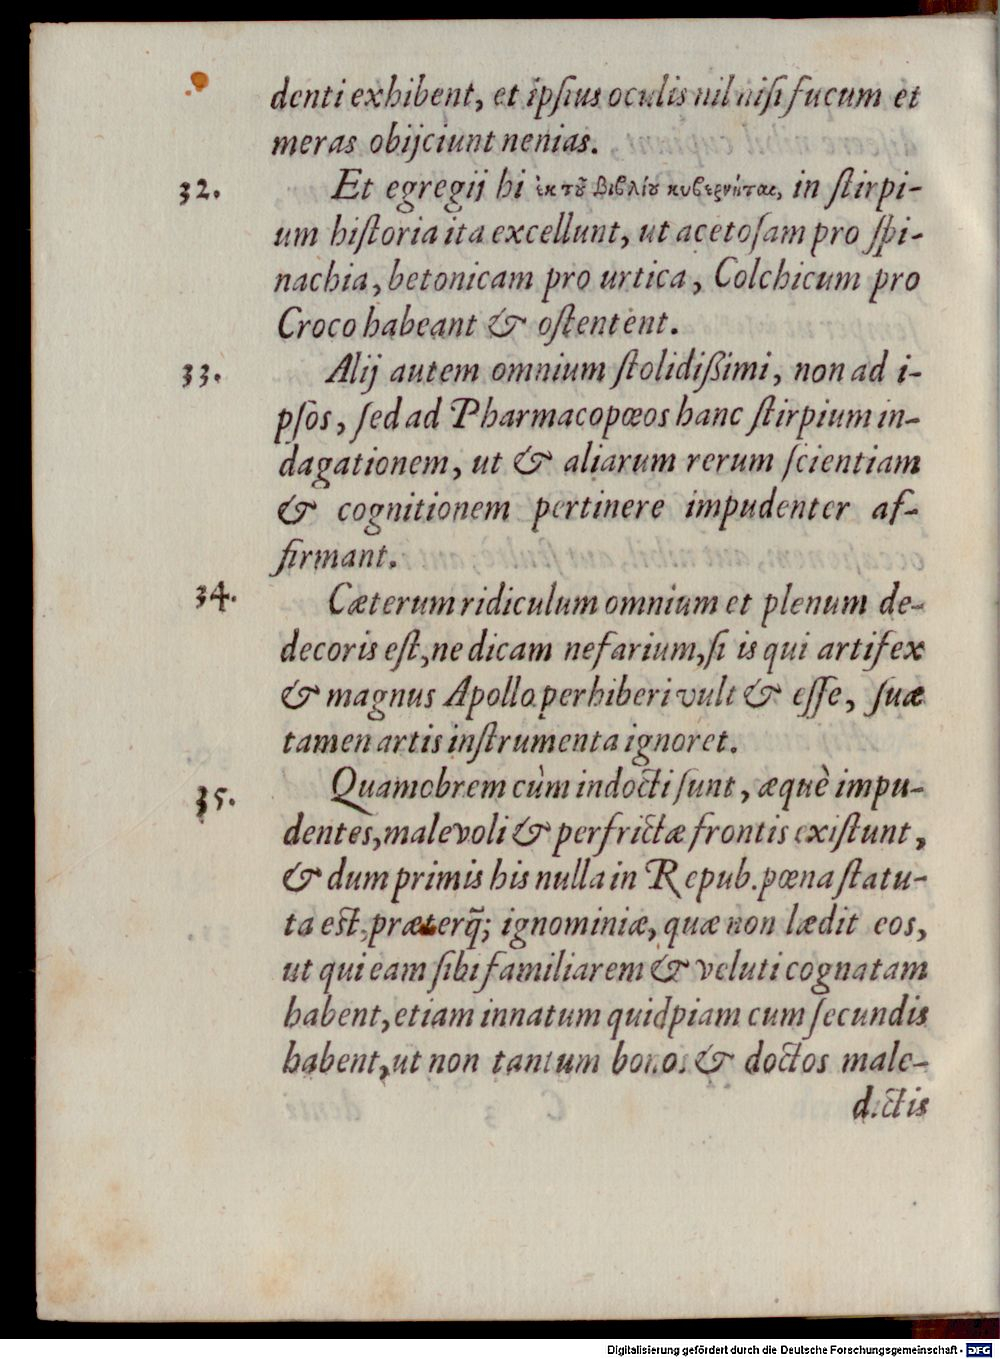 denti exhibent, et ipſius oculis nil niſi fucum et
meras obijciunt nenias.
32. Et egregij hi ἐκ τοῦ βιβλίου κυβερνήται, in ſtirpi-
um hiſtoria ita excellunt, ut acetoſam pro ſpi-
nachia, betonicam pro urtica, Colchicum pro
Croco habeant & oſtentent.
33. Alij autem omnium ſtolidißimi, non ad i-
pſos, ſed ad Pharmacopœos hanc ſtirpium in-
dagationem, ut & aliarum rerum ſcientiam
& cognitionem pertinere impudenter af-
firmant.
34. Cæterum ridiculum omnium et plenum de-
decoris eſt, ne dicam nefarium, ſi is qui artifex
& magnus Apollo perhiberi vult & eſſe, ſuæ
tamen artis inſtrumenta ignoret.
35. Quamobrem cùm indocti ſunt, æquè impu-
dentes, malevoli & perfrictæ frontis exiſtunt,
& dum primis his nulla in Repub. pœna ſtatu-
ta eſt, præterq̃; ignominiæ, quæ non lædit eos,
ut qui eam ſibi familiarem & veluti cognatam
habent, etiam innatum quidpiam cum ſecundis
habent, ut non tantum bonos & doctos male-
dictis
Digitalisierung gefördert durch die Deutsche Forschungsgemeinschaft - DFG